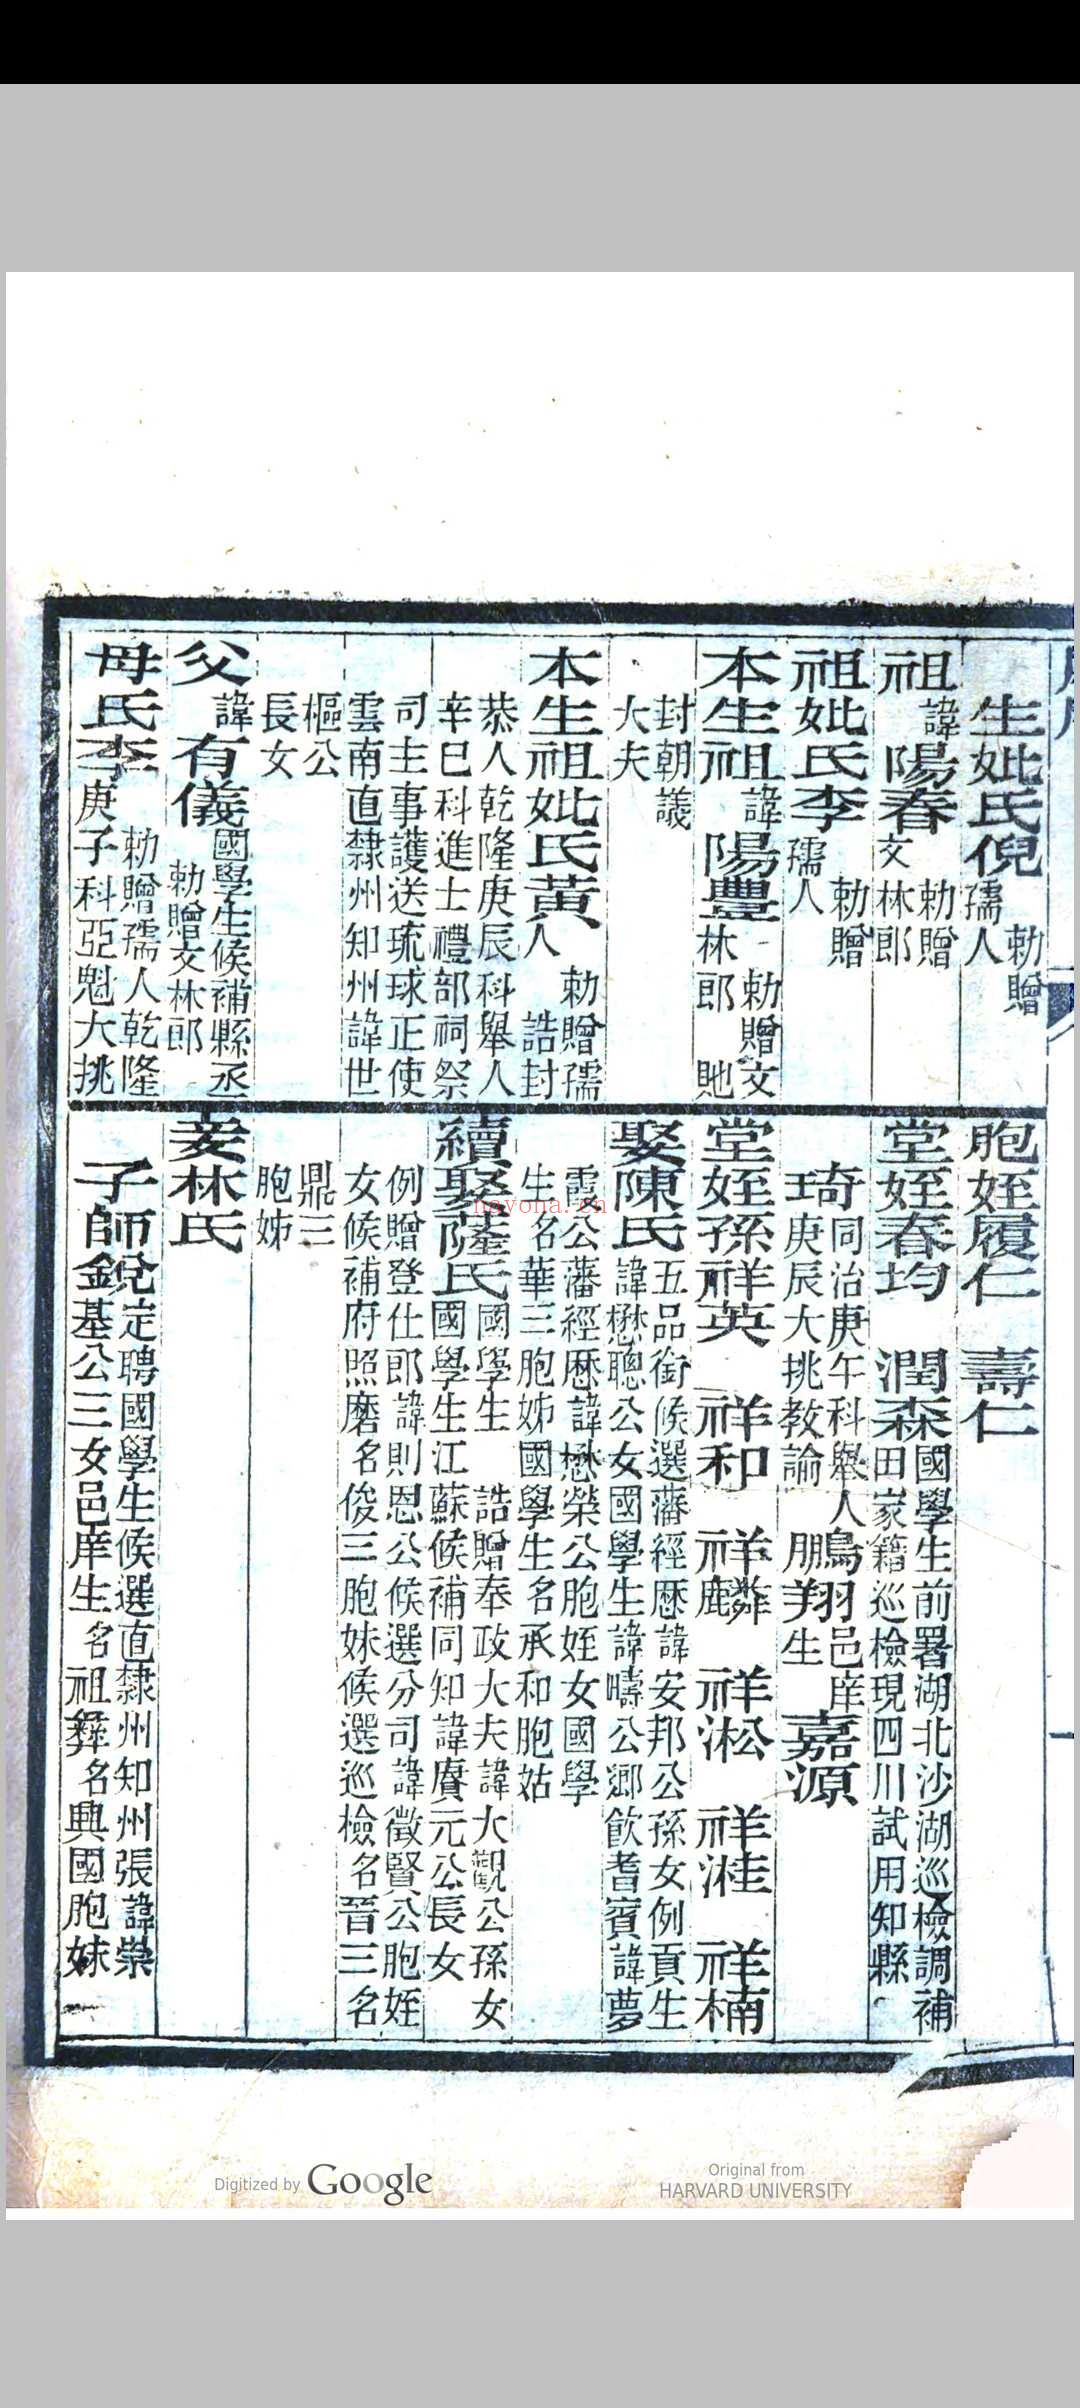 生妣氏倪 勅贈
孺人
祖 諱 陽春 勅贈
文林郎
祖妣氏李 勅贈
孺人
本生祖 諱 陽豐 勅贈文
林郎 貤
封朝議
大夫
本生祖妣氏黃 勅贈孺
人 誥封
恭人乾隆庚辰科舉人
辛巳科進士禮部祠祭
司主事護送琉球正使
雲南直隸州知州諱世
樞公
長女
父 諱 有儀 國學生候補縣丞
勅贈文林郎
母氏李 勅贈孺人乾隆
庚子科亞魁大挑
胞姪履仁 壽仁
堂姪春均 潤森 國學生前署湖北沙湖巡檢調補
田家籍巡檢現四川試用知縣
琦 同治庚午科舉人
庚辰大挑教諭
鵬翔 邑庠
生
嘉源
堂姪孫祥英 祥和 祥麟 祥淞 祥溎 祥楠
娶陳氏 五品銜候選藩經歷諱安邦公孫女例貢生
諱懋聰公女國學生諱疇公鄉飲耆賓諱夢
霞公藩經歷諱懋榮公胞姪女國學
生名華三胞姊國學生名承和胞姑
續娶薩氏 國學生 誥贈奉政大夫諱大觀公孫女
國學生江蘇候補同知諱賡元公長女
例贈登仕郎諱則恩公候選分司諱徵賢公胞姪
女候補府照磨名俊三胞妹候選巡檢名晉三名
鼎三
胞姊
妾林氏
子師銳 定聘國學生候選直隸州知州張諱崇
基公三女邑庠生名祖彝名興國胞妹
navona.cn
Digitized by Google
Original from
HARVARD UNIVERSITY